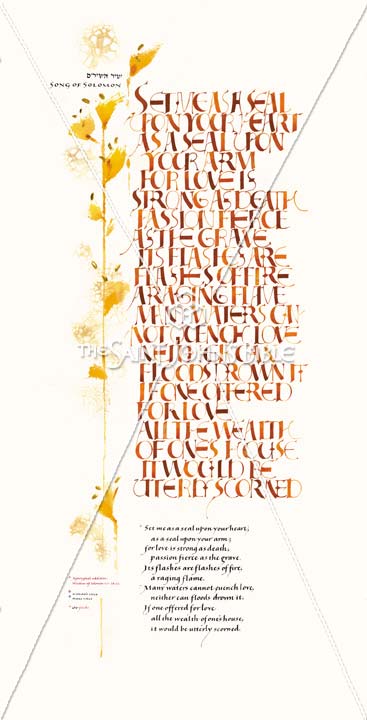 שיר השירים
SONG OF SOLOMON
SET ME AS A SEAL
UPON YOUR HEART
AS A SEAL UPON
YOUR ARM
FOR LOVE IS
STRONG AS DEATH
PASSION FIERCE
AS THE GRAVE
ITS FLASHES ARE
FLASHES OF FIRE
A RAGING FLAME
MANY WATERS CAN
NOT QUENCH LOVE
NEITHER CAN
FLOODS DROWN IT
IF ONE OFFERED
FOR LOVE
ALL THE WEALTH
OF ONE'S HOUSE
IT WOULD BE
UTTERLY SCORNED
THE SAINT JOHN'S BIBLE
Set me as a seal upon your heart,
as a seal upon your arm;
for love is strong as death,
passion fierce as the grave.
Its flashes are flashes of fire,
a raging flame.
Many waters cannot quench love,
neither can floods drown it.
If one offered for love
all the wealth of one's house,
it would be utterly scorned.